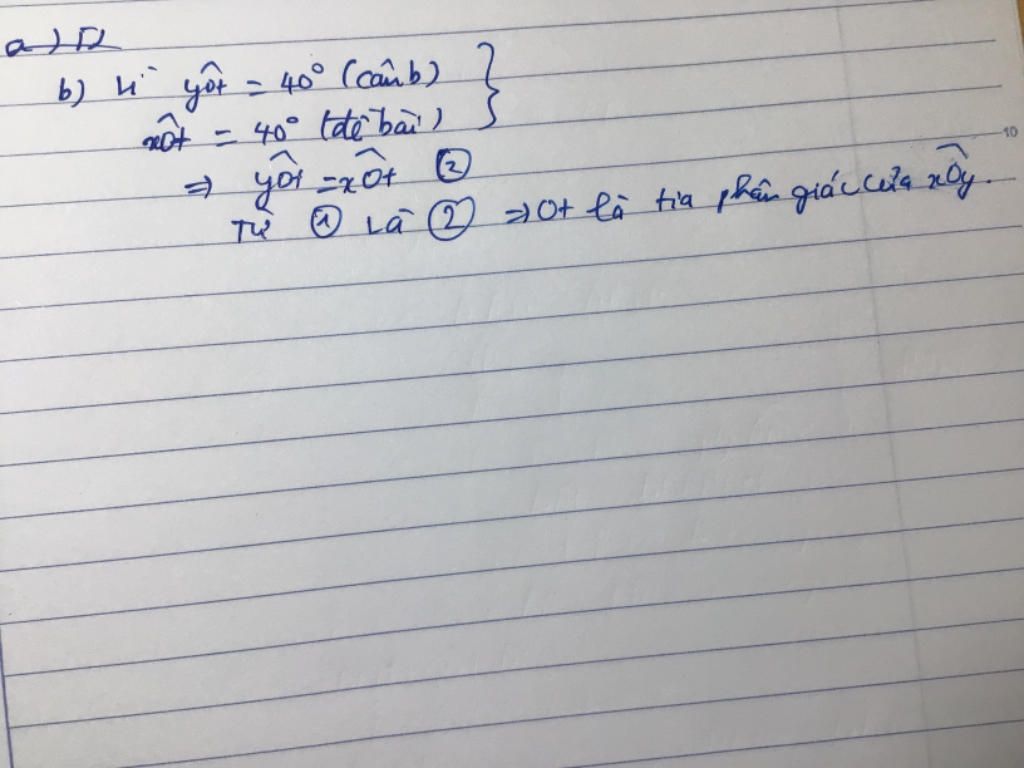 a)
b) Vì yÔt = 40° (câu b)
xÔt = 40° (đề bài) }
⇒ yÔt = xÔt ②
Từ ① và ② ⇒ Ot là tia phân giác của xÔy.
10